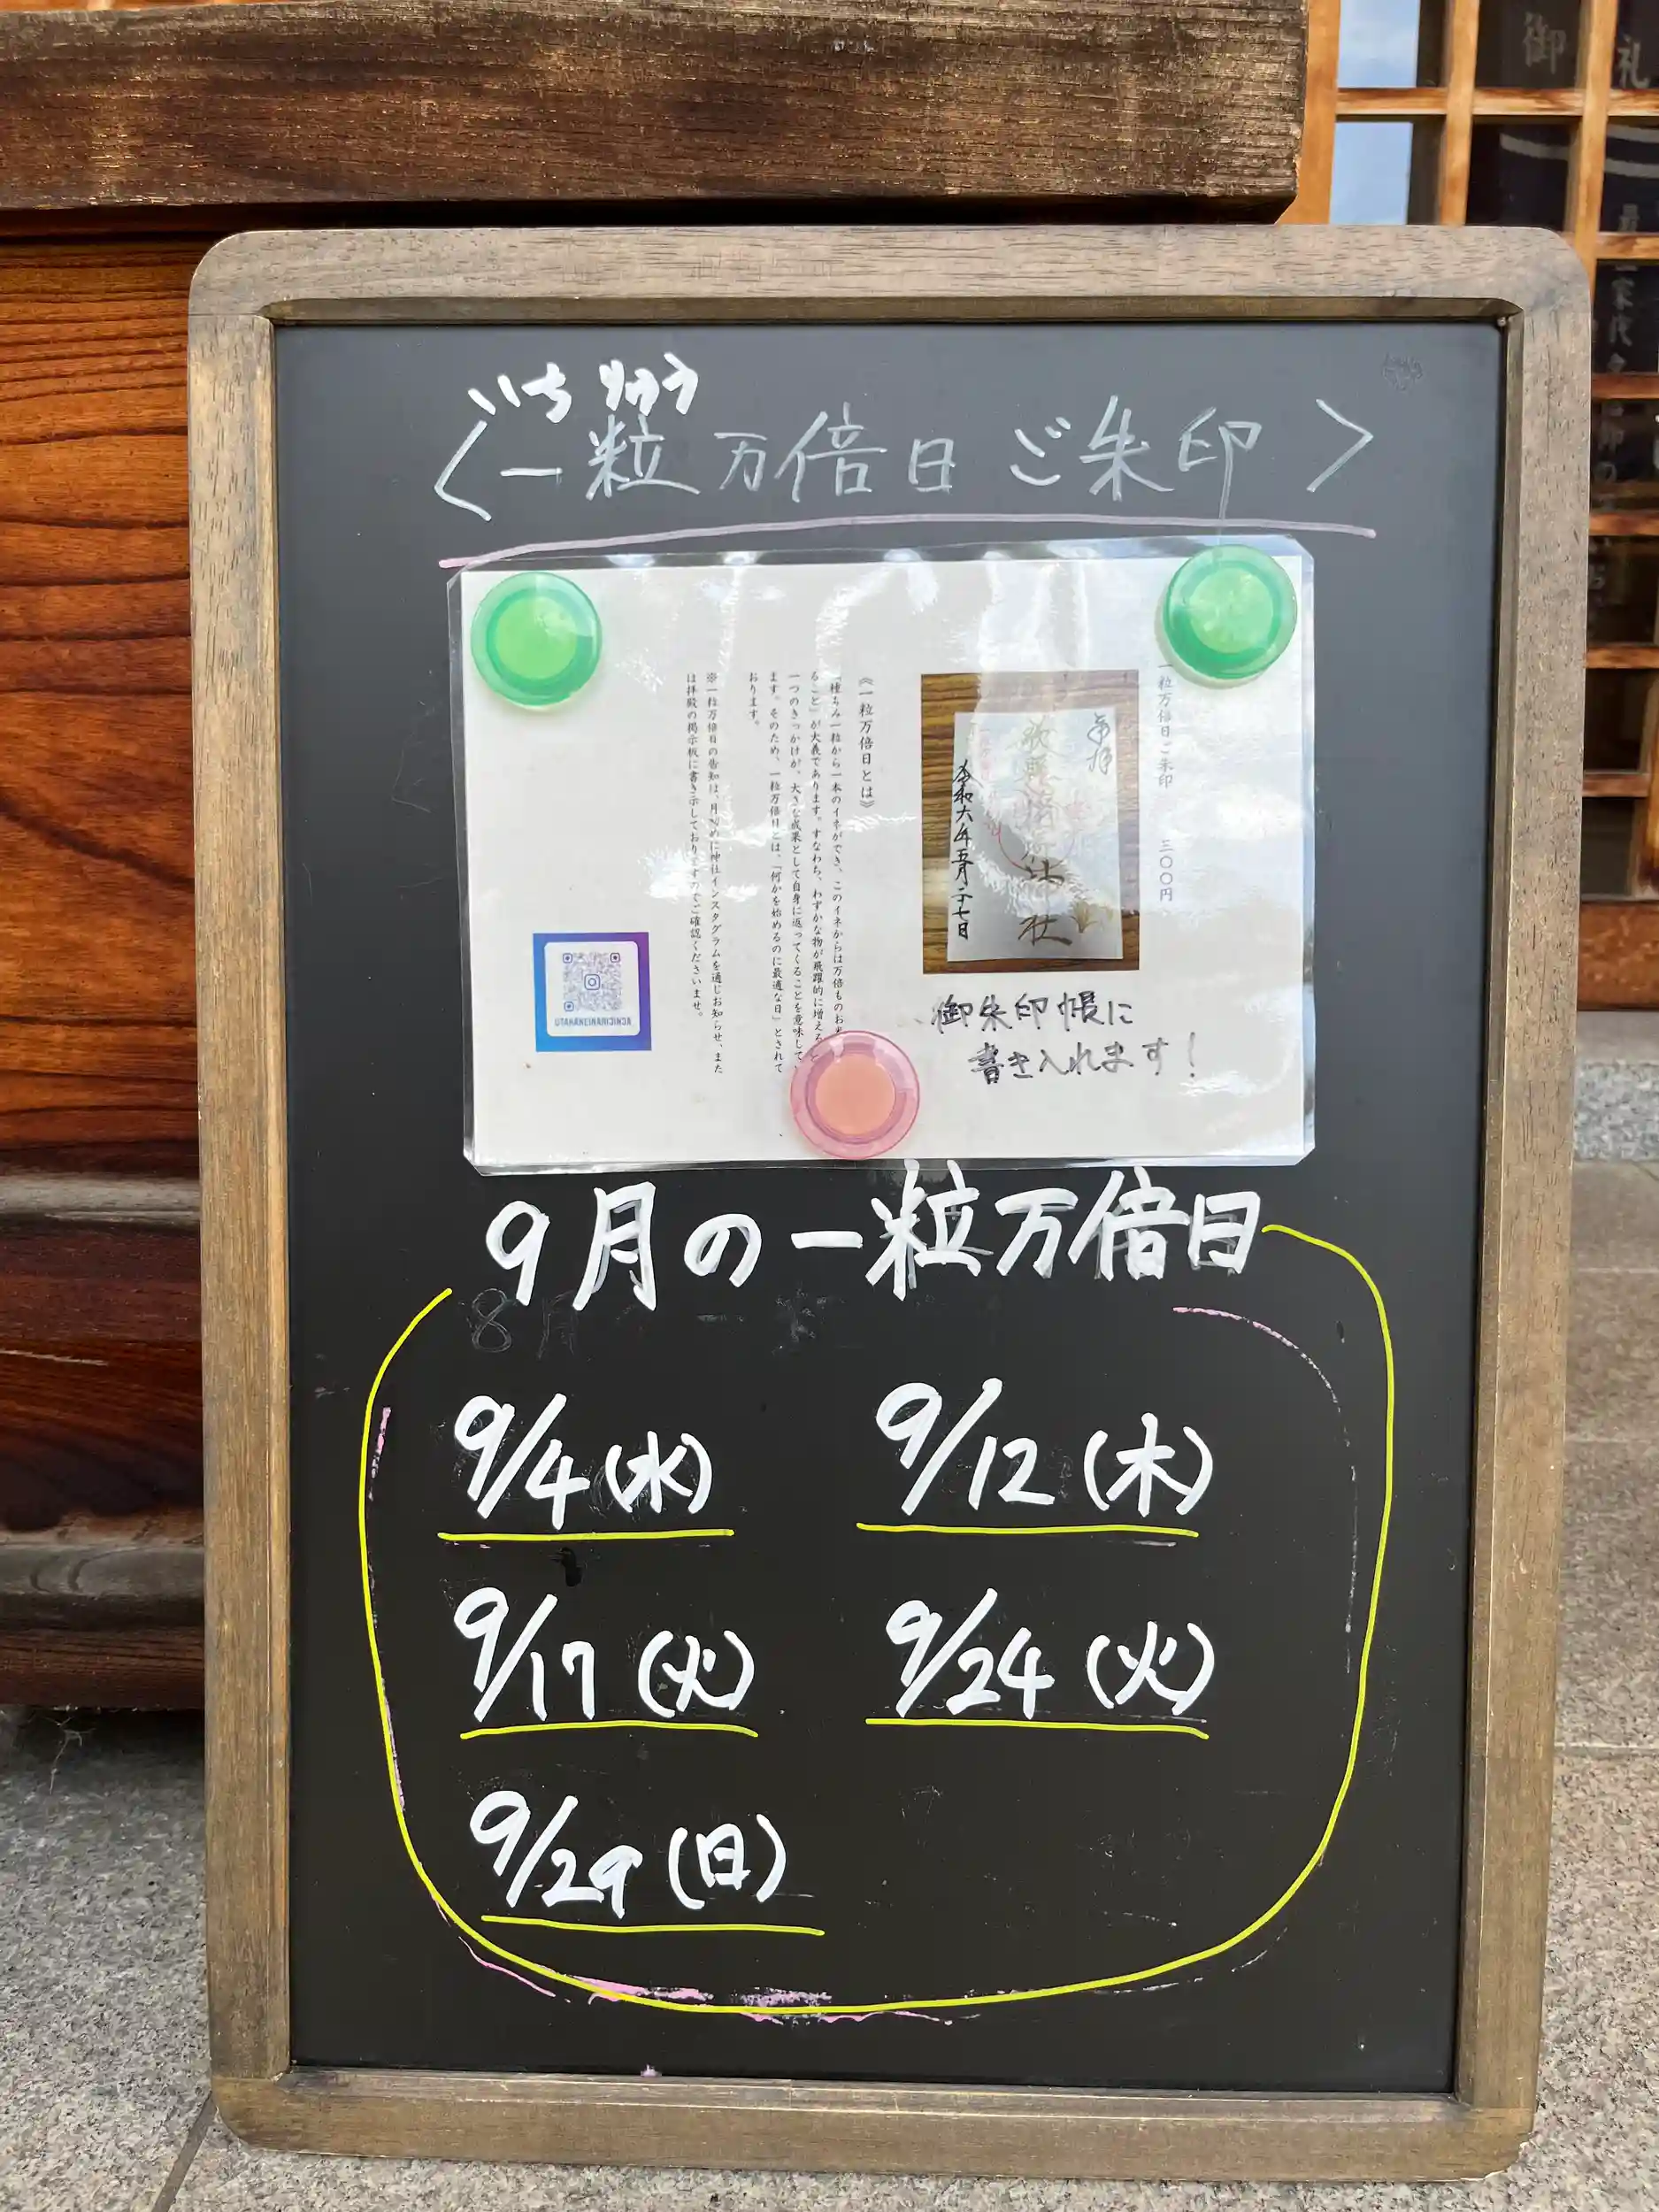 いち りゅう
〈一粒万倍日ご朱印〉
一粒万倍日ご朱印 三〇〇円
奉拝
令和六年五月二十七日
御朱印帳に
書き入れます！
《一粒万倍日とは》
「種もみ一粒から一本のイネができ、このイネからは万倍ものお
ること」が大義であります。すなわち、わずかな物が飛躍的に増える
一つのきっかけが、大きな成果として自身に返ってくることを意味して
ます。そのため、一粒万倍日とは、「何かを始めるのに最適な日」とされて
おります。
※一粒万倍日の告知は、月初めに神社インスタグラムを通じお知らせ、また
は拝殿の掲示板に書き示しておりますのでご確認くださいませ。
9月の一粒万倍日
9/4(水) 9/12(木)
9/17(火) 9/24(火)
9/29(日)